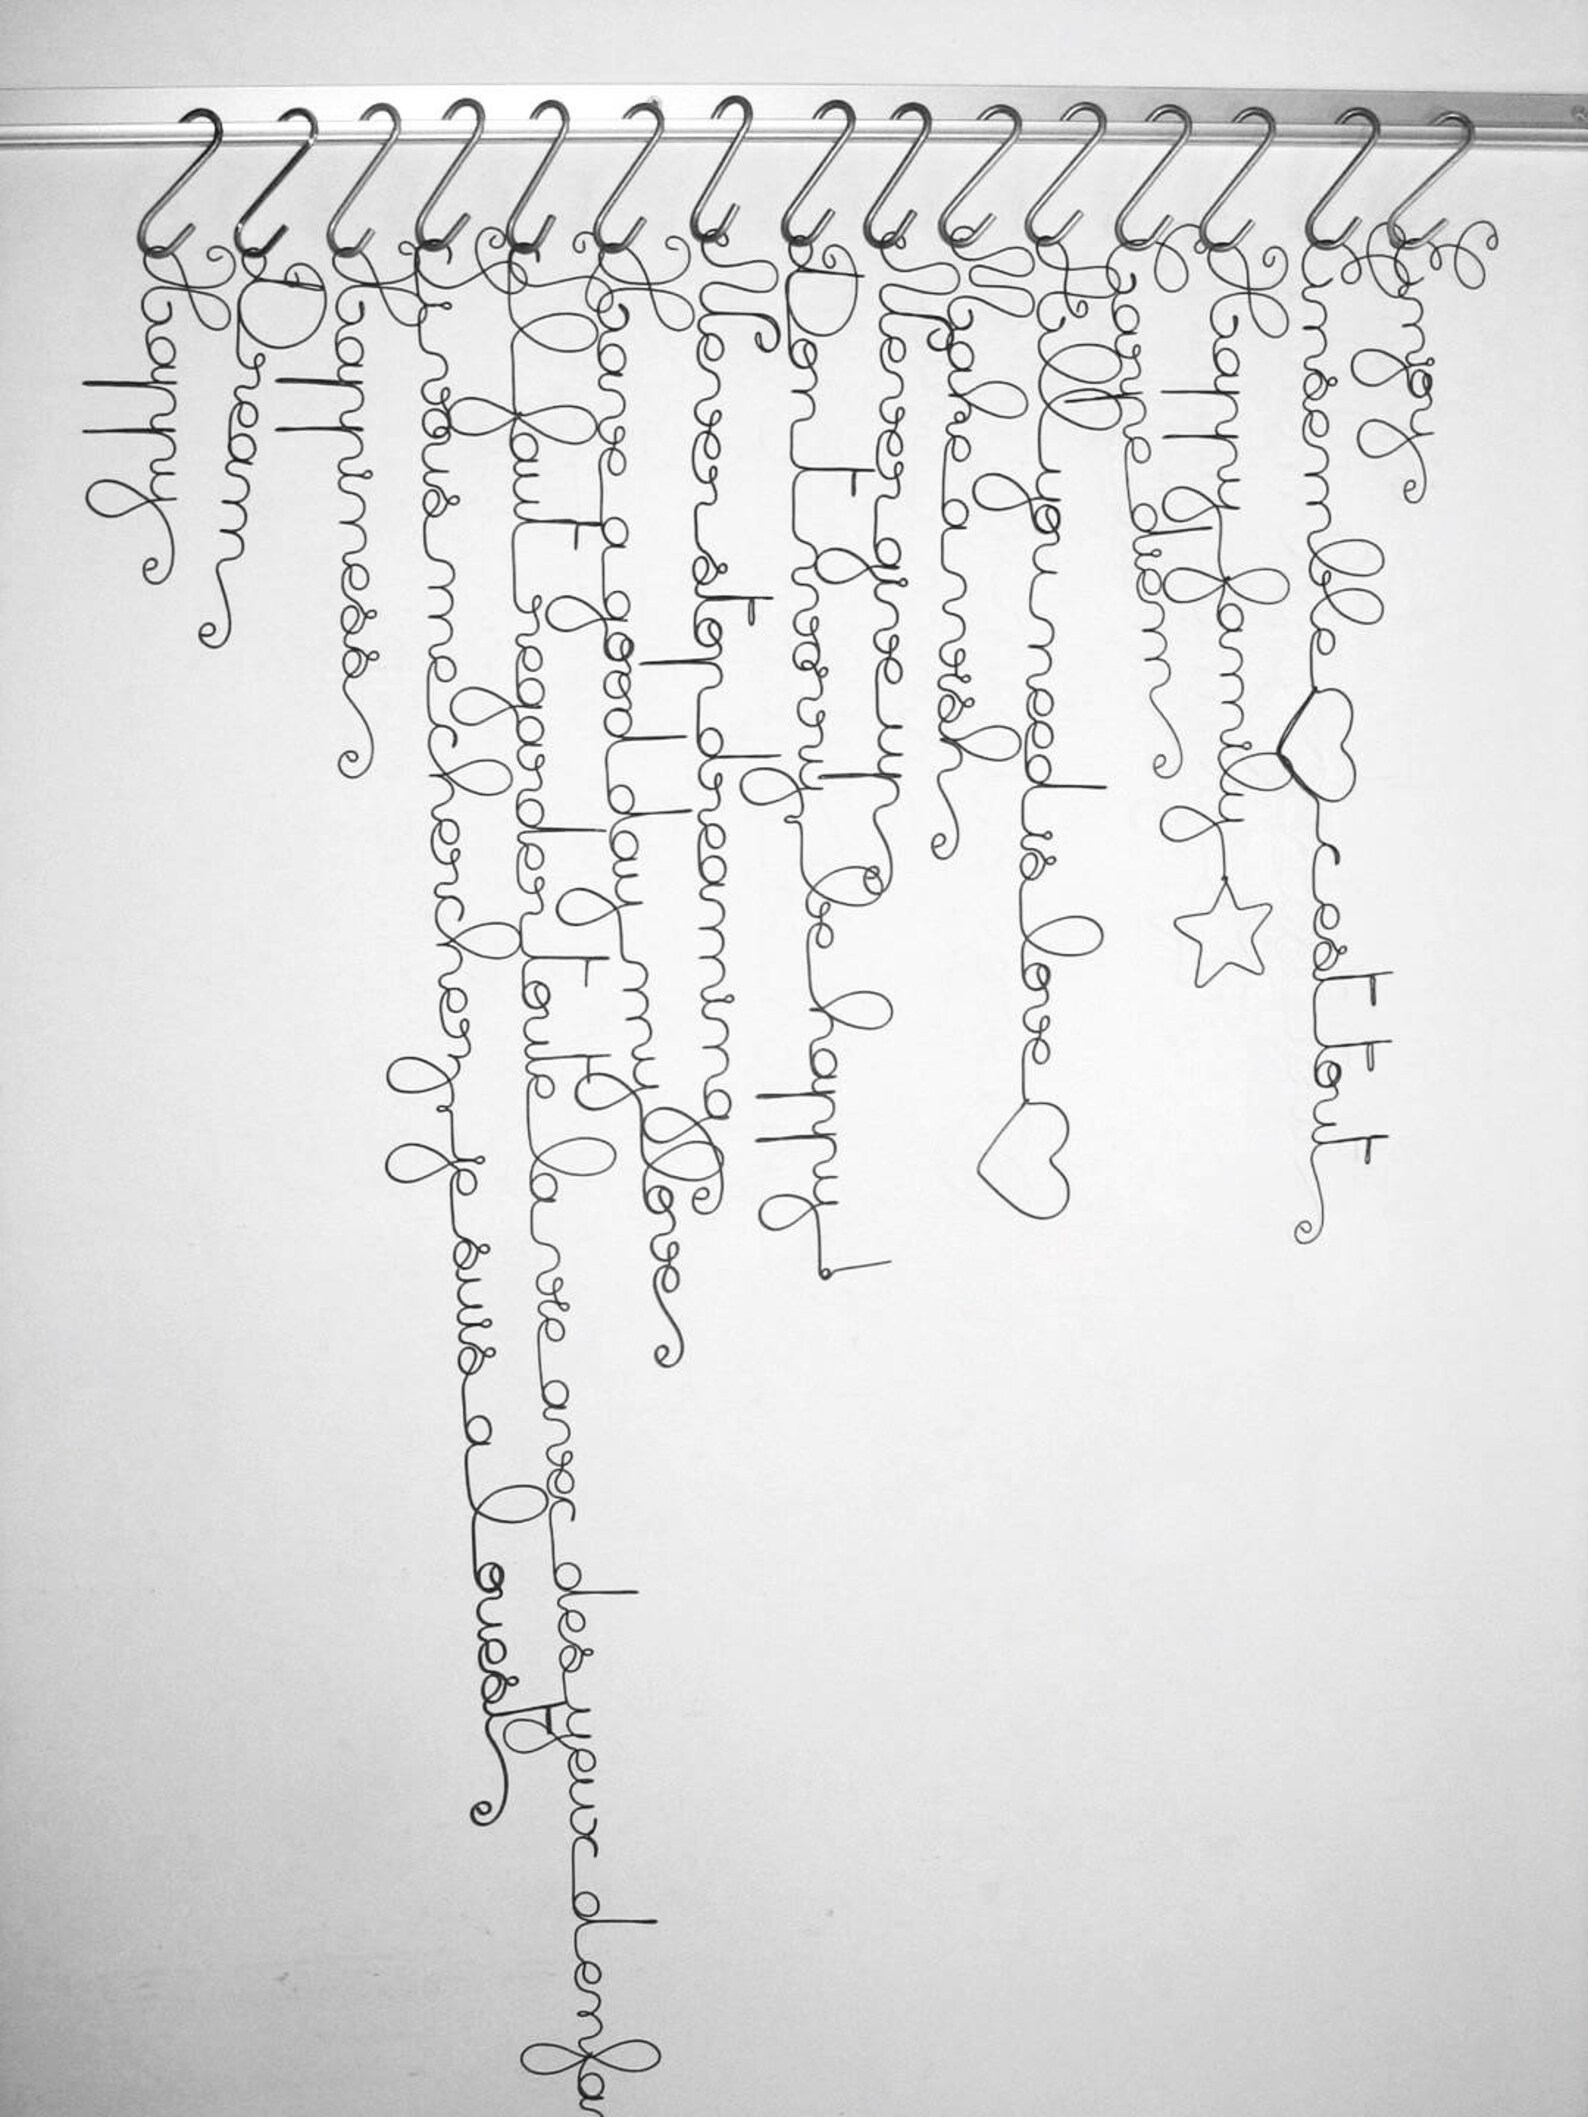 Happy
Dream
Happiness
Si vous me chercher je suis a louest
Il faut regarder toute la vie avec des yeux denfa
Have a good day my love
Never stop dreaming
Don't worry be happy
Never give up
Make a wish
All you need is love
Carpe diem
Happy family
Ensemble cest tout
Enjoy